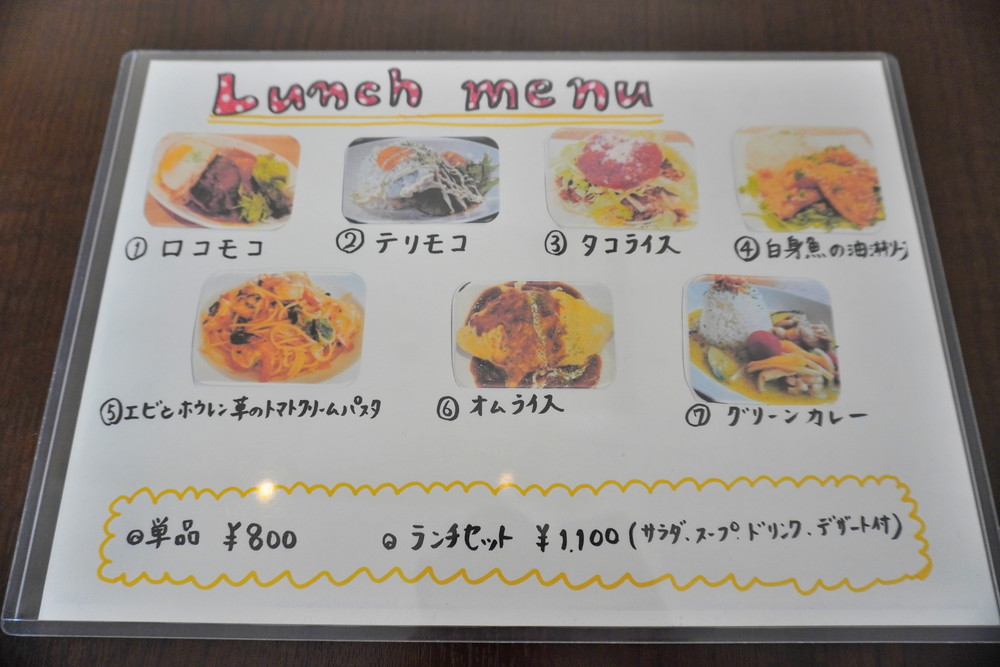 Lunch menu
① ロコモコ ② テリモコ ③ タコライス ④ 白身魚の油淋ソース
⑤ エビとホウレン草のトマトクリームパスタ ⑥ オムライス ⑦ グリーンカレー
◎単品 ¥800 ◎ランチセット ¥1,100 (サラダ、スープ、ドリンク、デザート付)